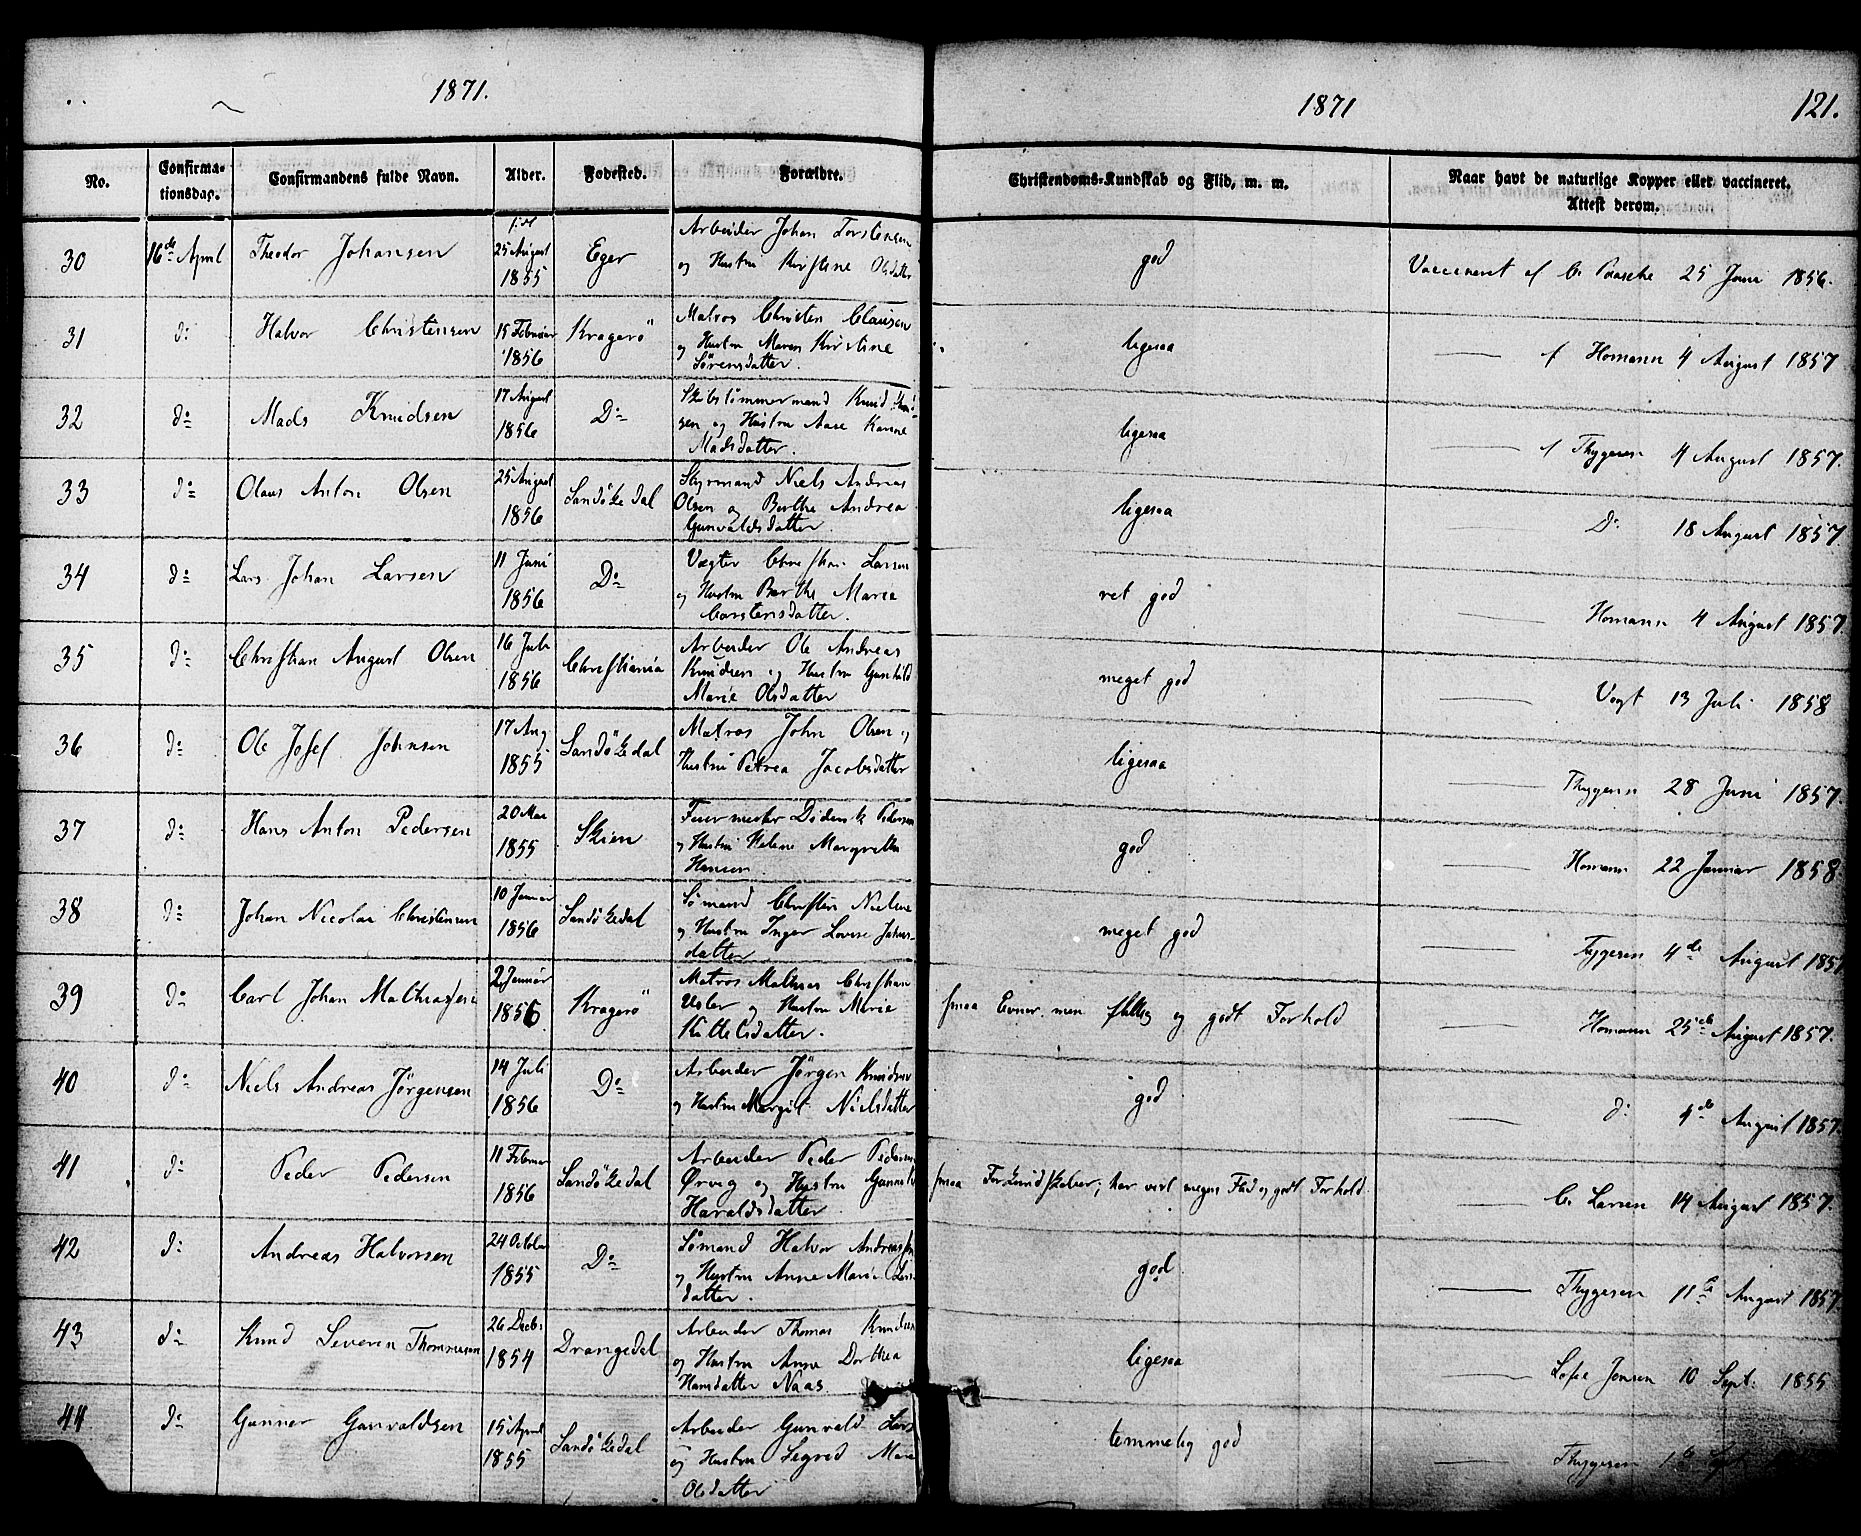 1871.
1871
121.
No.
Confirma-
tionsdag.
Confirmandens fulde Navn.
Alder.
Fødested.
Forældre.
Christendoms-Kundskab og Flid, m. m.
Naar havt de naturlige Kopper eller vaccineret.
Attest derom.
30 16de April Theodor Johansen 25 August 1855 Eger
Arbeider Johan Torstensen
og Hustru Kirstine Olsdatter
god
Vaccineret af C. Paaske 25 Juni 1856.
31 do Halvor Christensen 15 Februar 1856 Kragerö
Matros Christen Clausen
og Hustru Maren Kirstine
Sørensdatter.
ligesaa
— af Homann 4 August 1857
32 do Mads Knudsen 17 August 1856 Do
Skibstømmermand Knud Knud-
sen og Hustru Aase Karine
Madsdatter.
ligesaa
— af Thygesen 4 August 1857.
33 do Olaus Anton Olsen 25 August 1856 Sandökedal
Styrmand Niels Andreas
Olsen og Berthe Andrea
Gunvaldsdatter.
ligesaa
Do 18 August 1857.
34 do Lars Johan Larsen 11 Juni 1856 Do
Vægter Christian Larsen
og Hustru Berthe Marie
Carstensdatter.
ret god
— Homann 4 August 1857.
35 do Christian August Olsen 16 Juli 1856 Christiania
Arbeider Ole Andreas
Knudsen og Hustru Gunhild
Marie Olsdatter
meget god
— Vogt 13 Juli 1858
36 do Ole Josef Johnsen 17 Aug 1855 Sandökedal
Matros John Olsen og
Hustru Petrea Jacobsdatter
ligesaa
— Thygesen 28 Juni 1857.
37 do Hans Anton Pedersen 20 Mai 1855 Skien
Feiermester Didrik Pedersen
og Hustru Helene Margrethe
Hansen.
god
— Homann 22 Januar 1858
38 do Johan Nicolai Christensen 10 Januar 1856 Sandökedal
Sømand Christen Nielsen
og Hustru Inger Lovise Johns-
datter
meget god
— Tygesen 4de August 1857
39 do Carl Johan Mathiassen 2 Januar 1856 Kragerö
Matros Mathias Christian
og Hustru Marie
Kittelsdatter.
smaa Evner men flittig og godt Forhold
— Homann 25de August 1857.
40 do Niels Andreas Jörgensen 14 Juli 1856 Do
Arbeider Jörgen Knudsen
og Hustru Margit Nielsdatter
god
— do 4de August 1857.
41 do Peder Pedersen 11 Februar 1856 Sandökedal
Arbeider Peder Pedersen
Ørvig og Hustru
Haraldsdatter.
smaa Forkundskaber; har vist megen Flid og godt Forhold.
— C. Larsen 14 August 1857.
42 do Andreas Halvorsen 24 October 1855 Do
Sømand Halvor Andreassen
og Hustru Anne Marie Lars-
datter.
god
— Thygesen 11te August 1857
43 do Knud Severin Thommesen 26 Decbr 1854 Drangedal
Arbeider Thomas Knudsen
og Hustru Anne Dorthea
Hansdatter Naas.
ligesaa
— Jonsen 10 Sept. 1855
44 do Gunner Gunvaldsen 15 April 1855 Sandökedal
Arbeider Gunvald Lars
og Hustru Segred Marie
Olsdatter
temmelig god
— Thygesen